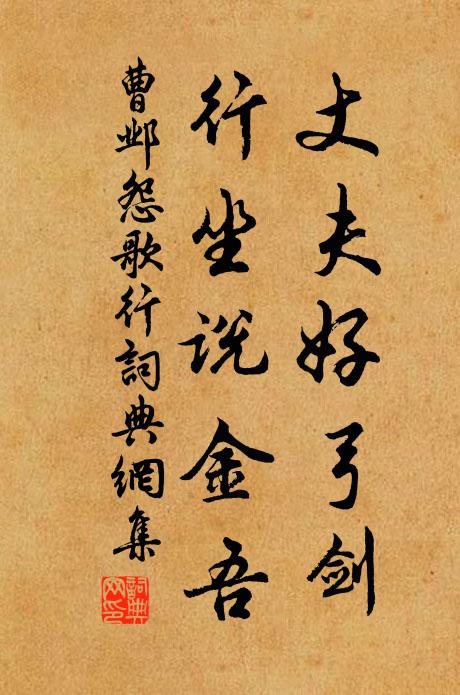 丈夫好弓剑
行坐说金吾
曹邺怨歌行詞典網集
詞典网印